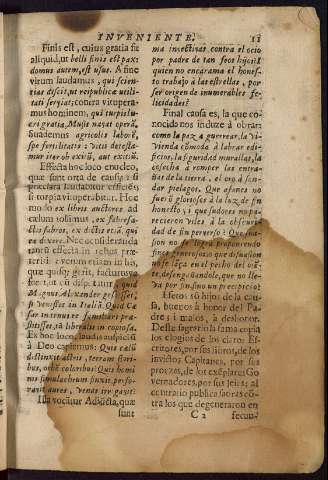 INVENIENTE. 11
Finis est, cuius gratia fit
aliquid, ut belli finis est pax:
domus autem, est usus. A fine
virum laudamus, qui scien-
tias discit, ut reipublicæ utili-
tati serviat; contra vitupera-
mus hominem, qui
Suademus agricolis labore,
spe fertilitatis: vitis detesta-
mur iter ob exitu, aut exitiū.
Effecta hoc loco enucleo,
quæ sunt orta de causa: si
præclara laudabitur efficiēs,
si torpia vituperabitur. Hoc
modo ex libris auctores ad
cælum tollimus, ex fabrefa-
ctis fabros, ex dictis
dere. Nec consideranda
tantū effecta in rebus præ-
teritis: verum etiam in his,
que quisq; gerit, facturusve
fuerit, ut cū disputatur, quid
Magnus Alexander gessisset,
si venisset in Italiā? Quid Cæ-
sar
stitisset, si liberalis
Ex hoc loco,
à Deo capimus: Quis cælū
distinxit astris, terram flori-
bus, orbē coloribus? Quis homi-
nis simulachrum finxit, perso-
navit aures, venas irrigavit?
Illa vocātur Adiūcta, quæ
sunt
ma insectivas contra el ocio
por padre de tan feos hijos?
quien no encarama el hones-
to trabajo à las estrellas, por
ser origen de innumerables fe-
licidades?
Final causa es, la que co-
nocida nos induze à obrar:
como la paz à guerrear, la vi-
vienda còmoda à labrar edi-
ficios, la seguridad murallas, la
cosecha à romper las entra-
ñas de la tierra, el oro à son-
dar pielagos. Que afanes no
fuerō gloriosos à la luz de fin
honesto? i que sudores no pa-
recieron viles à la obscuri-
dad de fin perverso? Que
sion no se logrò proponiendo
fines generosos? que disuasion
no se fixa en el pecho del oiē-
te, desengañandole, que no lle-
va por fin sino un precipicio?
Efetos sō hijos de la cau-
sa, buenos à honor del Pa-
dre; i malos, à deshonor.
Deste sagrario la fama copia
los elogios de los claros Es-
critores, por sus libros, de los
invictos Capitanes, por sus
proezas, de los exēplares Go-
vernadores, por sus leies; al
contrario publica satiras cō-
tra los que degeneraron en
C 2 fecun-